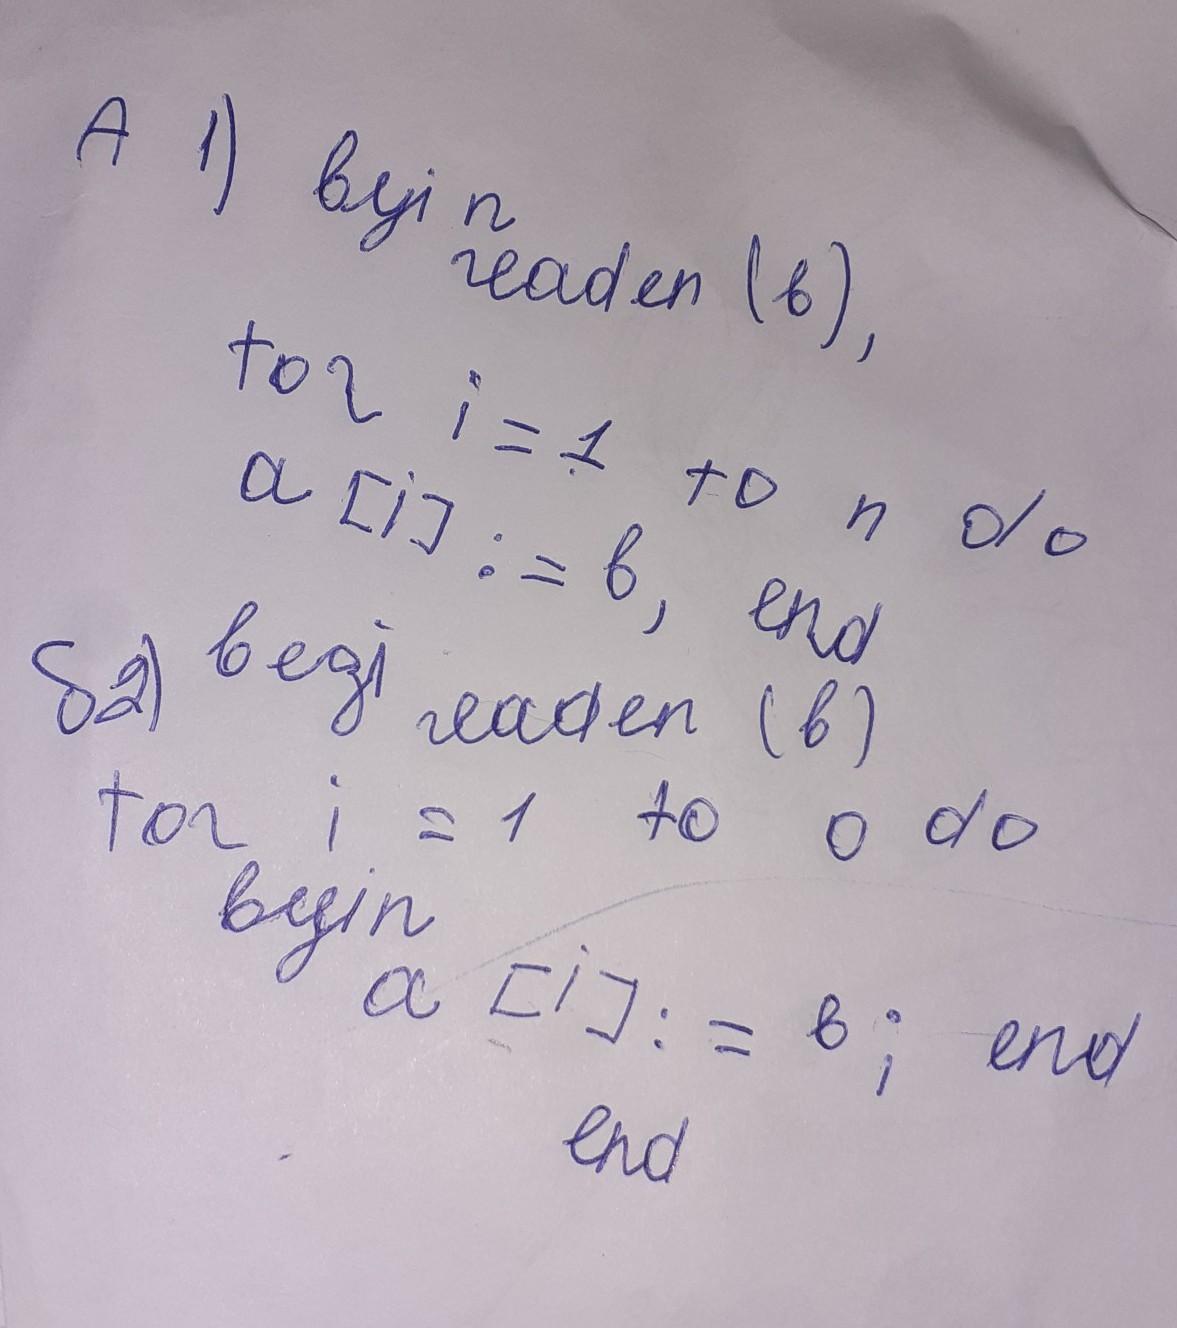 A 1) begin
readen (b),
tor i = 1 to n do
a [i] := b, end
б2) begi readen (b)
tor i = 1 to 0 do
begin
a [i] := b; end
end